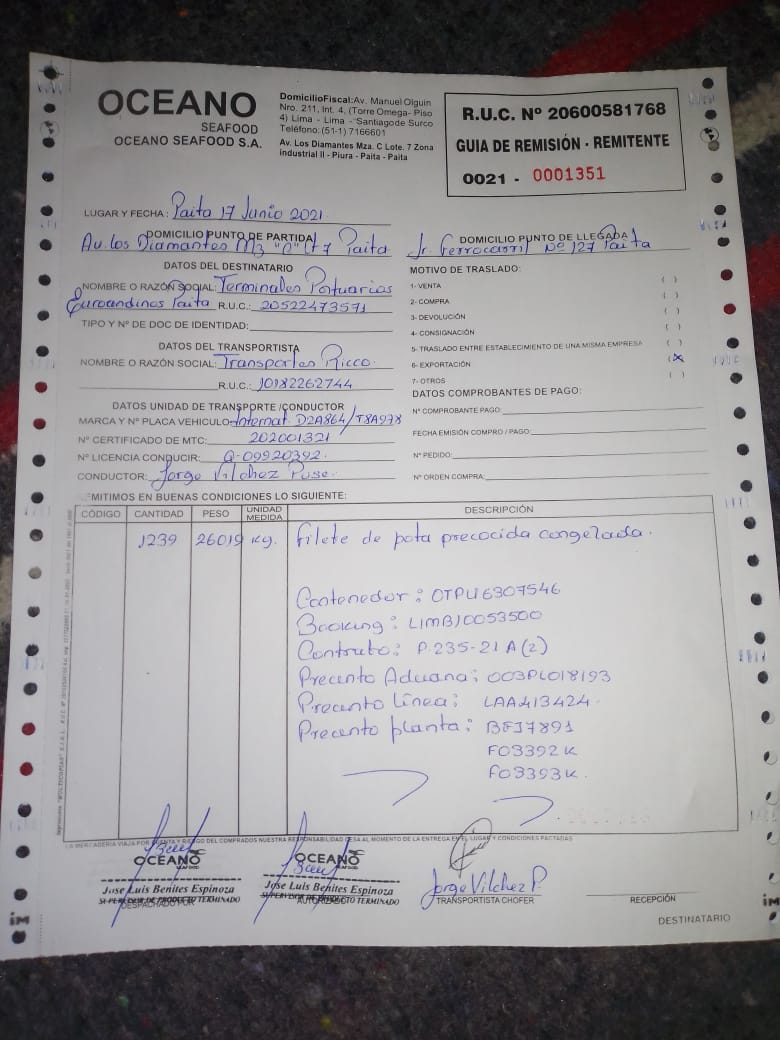 OCEANO
SEAFOOD
OCEANO SEAFOOD S.A.
DomicilioFiscal:Av. Manuel Olguin
Nro. 211, Int. 4, (Torre Omega- Piso
4) Lima - Lima - Santiago de Surco
Teléfono:(51-1) 7166601
Av. Los Diamantes Mza. C Lote. 7 Zona
industrial II - Piura - Paita - Paita
R.U.C. Nº 20600581768
GUIA DE REMISIÓN - REMITENTE
0021 - 0001351
LUGAR Y FECHA: Paita 17 Junio 2021
DOMICILIO PUNTO DE PARTIDA
Av. los Diamantes Mz "C" Lt 7 Paita
DOMICILIO PUNTO DE LLEGADA
Jr. Ferrocarril Nº 127 Paita
DATOS DEL DESTINATARIO
NOMBRE O RAZÓN SOCIAL: Terminales Portuarios
Euroandinos Paita R.U.C.: 20522473571
TIPO Y Nº DE DOC DE IDENTIDAD:
DATOS DEL TRANSPORTISTA
NOMBRE O RAZÓN SOCIAL: Transportes Ricco.
R.U.C.: 10182262744
DATOS UNIDAD DE TRANSPORTE /CONDUCTOR
MARCA Y Nº PLACA VEHICULO: Internat D2A864/T8A978
Nº CERTIFICADO DE MTC: 202001321
Nº LICENCIA CONDUCIR: Q-09920392
CONDUCTOR: Jorge Vilchez Puse.
MOTIVO DE TRASLADO:
1- VENTA ( )
2- COMPRA ( )
3- DEVOLUCIÓN ( )
4- CONSIGNACIÓN ( )
5- TRASLADO ENTRE ESTABLECIMIENTO DE UNA MISMA EMPRESA ( )
6- EXPORTACIÓN (X)
7- OTROS ( )
DATOS COMPROBANTES DE PAGO:
Nº COMPROBANTE PAGO:
FECHA EMISIÓN COMPRO / PAGO:
Nº PEDIDO:
Nº ORDEN COMPRA:
MITIMOS EN BUENAS CONDICIONES LO SIGUIENTE:
CÓDIGO CANTIDAD PESO UNIDAD MEDIDA DESCRIPCIÓN
1239 26019 Kg. Filete de pota precocida congelada.
Contenedor: OTPU6307546
Booking: LIMB10053500
Contrato: P.235-21A(2)
Precinto Aduana: 003PL018193
Precinto Línea: LAA413424.
Precinto planta: BFI7891
F03392K
F03393K.
LA MERCADERIA VIAJA POR CUENTA Y RIESGO DEL COMPRADOS NUESTRA RESPONSABILIDAD CESA AL MOMENTO DE LA ENTREGA EN EL LUGAR Y CONDICIONES PACTADAS
OCEANO
SEAFOOD
Jose Luis Benites Espinoza
SUPERVISOR DE PRODUCTO TERMINADO
DESPACHADO POR
OCEANO
SEAFOOD
Jose Luis Benites Espinoza
SUPERVISOR DE PRODUCTO TERMINADO
AUTORIZADO
Jorge Vilchez P.
TRANSPORTISTA CHOFER
RECEPCIÓN
DESTINATARIO
im
im